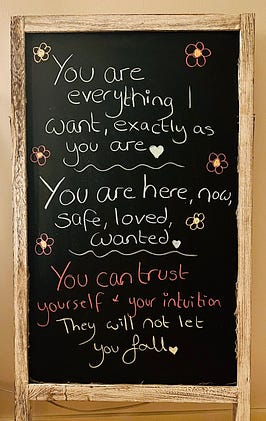 You are
everything I
want, exactly as
you are
You are here, now,
safe, loved,
wanted.
You can trust
yourself + your intuition
They will not let
you fall